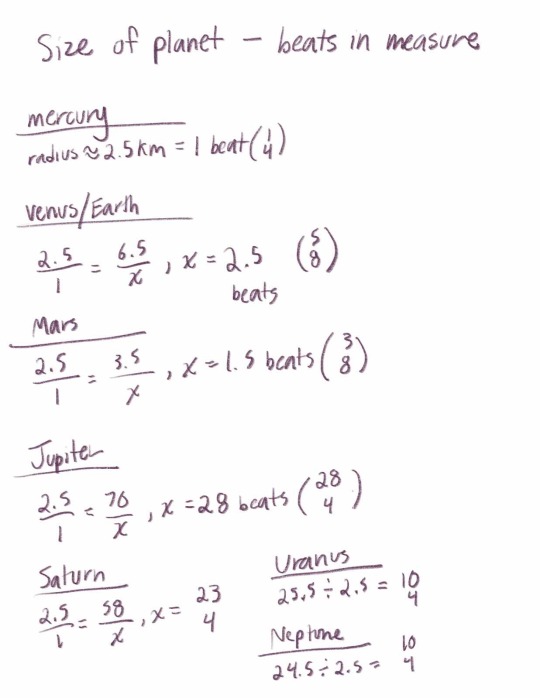 Size of planet – beats in measure
mercury
radius ≈ 2.5 km = 1 beat (1/4)
Venus/Earth
2.5/1 = 6.5/x , x = 2.5 (5/8)
beats
Mars
2.5/1 = 3.5/x , x = 1.5 beats (3/8)
Jupiter
2.5/1 = 70/x , x = 28 beats (28/4)
Saturn
2.5/1 = 58/x , x = 23/4
Uranus
25.5 ÷ 2.5 = 10/4
Neptune
24.5 ÷ 2.5 = 10/4